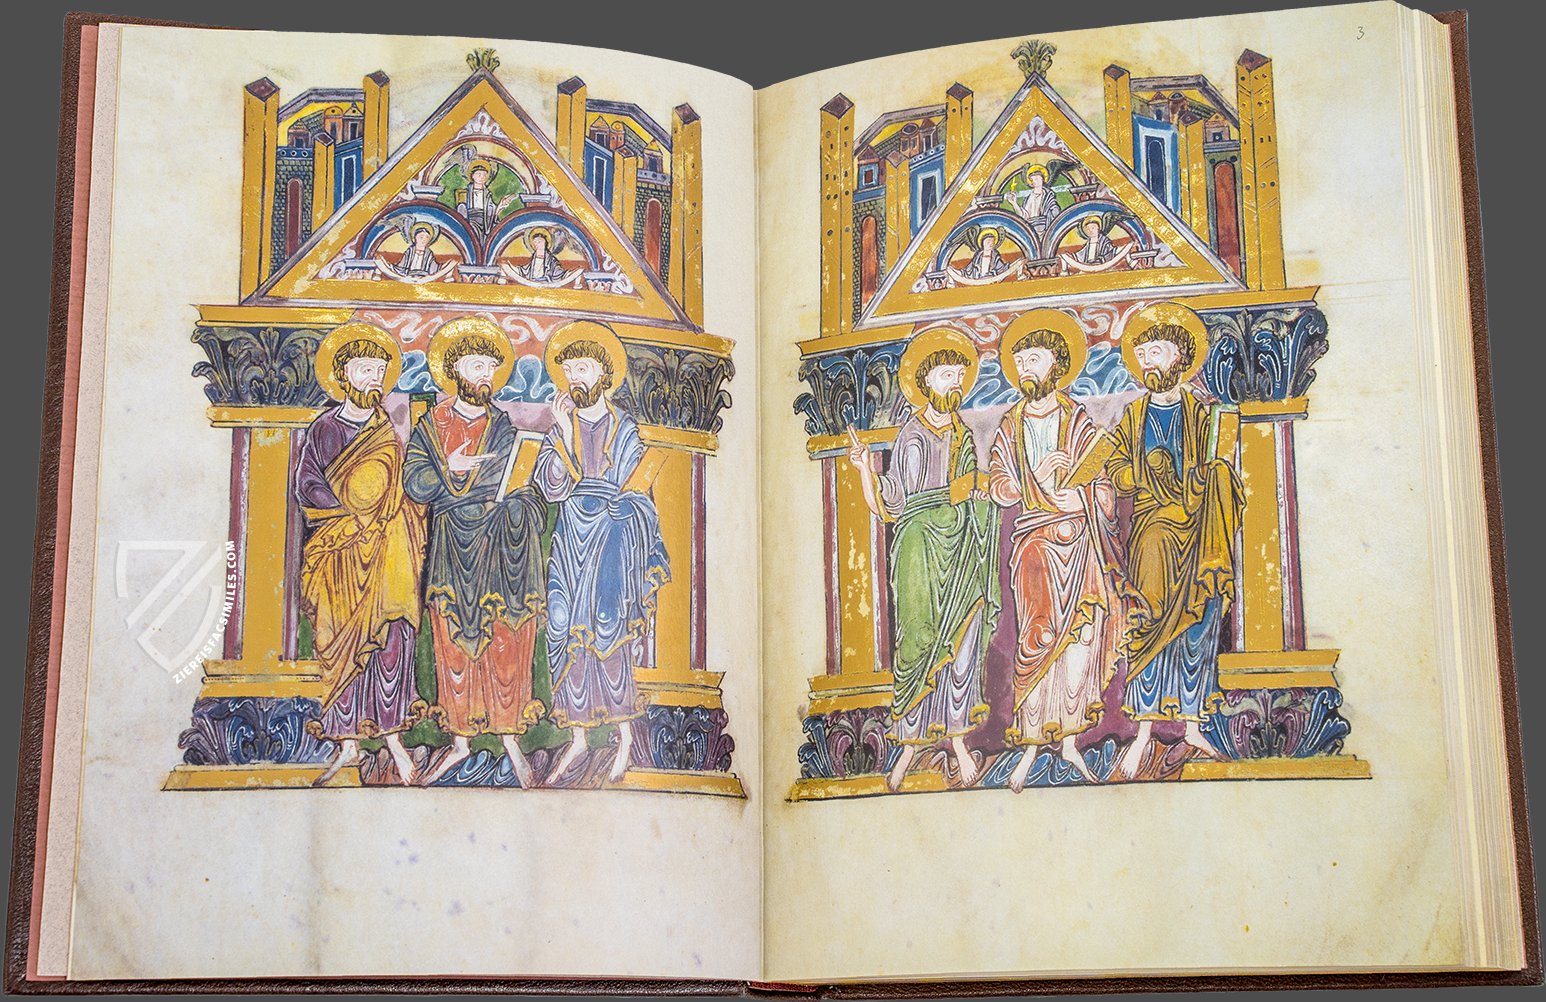 3
ZIEREISFACSIMILES.COM